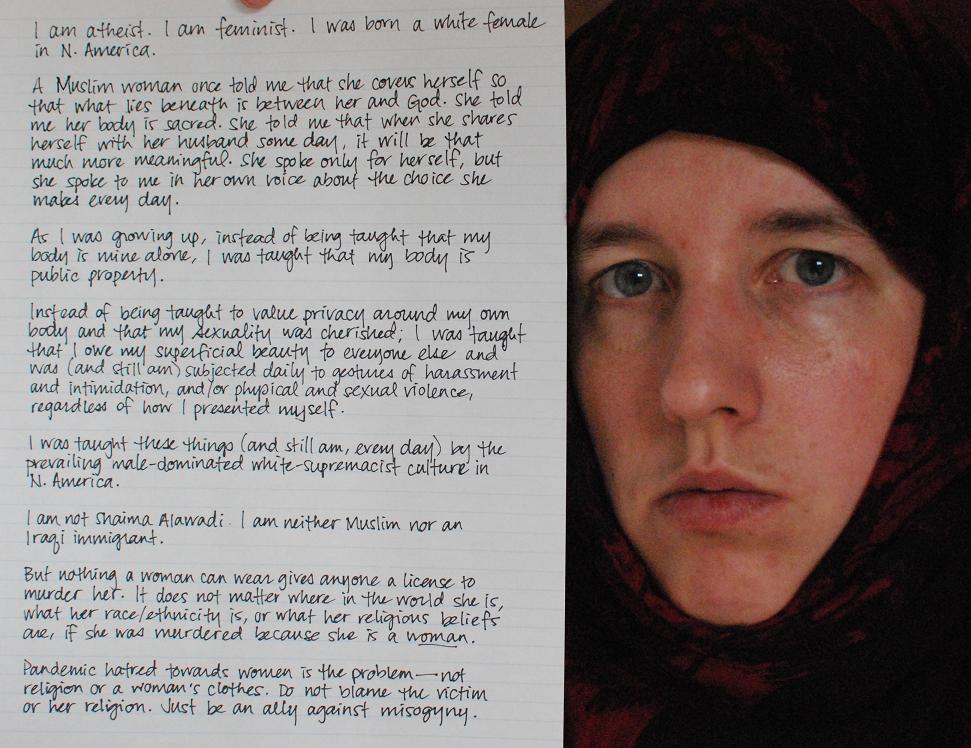 I am atheist. I am feminist. I was born a white female
in N. America.
A Muslim woman once told me that she covers herself so
that what lies beneath is between her and God. She told
me her body is sacred. She told me that when she shares
herself with her husband some day, it will be that
much more meaningful. She spoke only for herself, but
she spoke to me in her own voice about the choice she
makes every day.
As I was growing up, instead of being taught that my
body is mine alone, I was taught that my body is
public property.
Instead of being taught to value privacy around my own
body and that my sexuality was cherished; I was taught
that I owe my superficial beauty to everyone else and
was (and still am) subjected daily to gestures of harassment
and intimidation, and/or physical and sexual violence,
regardless of how I presented myself.
I was taught these things (and still am, every day) by the
prevailing male-dominated white-supremacist culture in
N. America.
I am not Shaima Alawadi. I am neither Muslim nor an
Iraqi immigrant.
But nothing a woman can wear gives anyone a license to
murder her. It does not matter where in the world she is,
what her race/ethnicity is, or what her religious beliefs
are, if she was murdered because she is a woman.
Pandemic hatred towards women is the problem—not
religion or a woman's clothes. Do not blame the victim
or her religion. Just be an ally against misogyny.